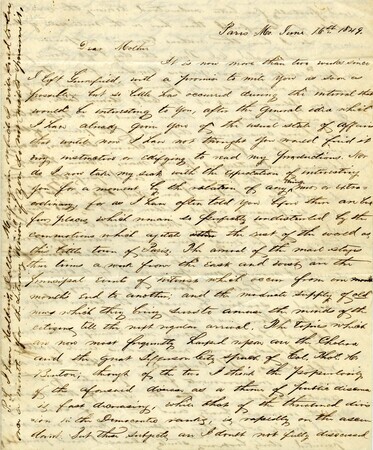 Paris Mo. June 16th 1849.
Dear Mother
It is now more than two weeks since
I left Greenfield, with a promise to write you as soon as
possible, but so little has occurred during the interval that
would be interesting to you, after the general idea which
I have already given you of the usual state of affairs
that until now I have not thought you would find it
very instructive or edifying to read my productions. Nor
do I now take my seat with the expectation of interesting
you for a moment by the relation of any new or extra-
ordinary, for as I have often told you before there are but
few places which remain so perfectly undisturbed by the
commotions which agitate the rest of the world as
this little town of Paris. The arrival of the mail stage
three times a week from the East and west, are the
principal events of interest which occur from one
months end to another; and the moderate supply of
news which they bring serves to amuse the minds of the
citizens till the next regular arrival. The topics which
are now most frequently harped upon, are the Cholera
and the great Jefferson City speech of Col. Thos. H.
Benton; though of the two I think the popularity
of the aforesaid disease as a theme of public discourse
is fast decreasing, while that of the threatened divis-
ion in the Democratic ranks, is rapidly on the ascen-
dant. But these subjects are I doubt not fully discussed